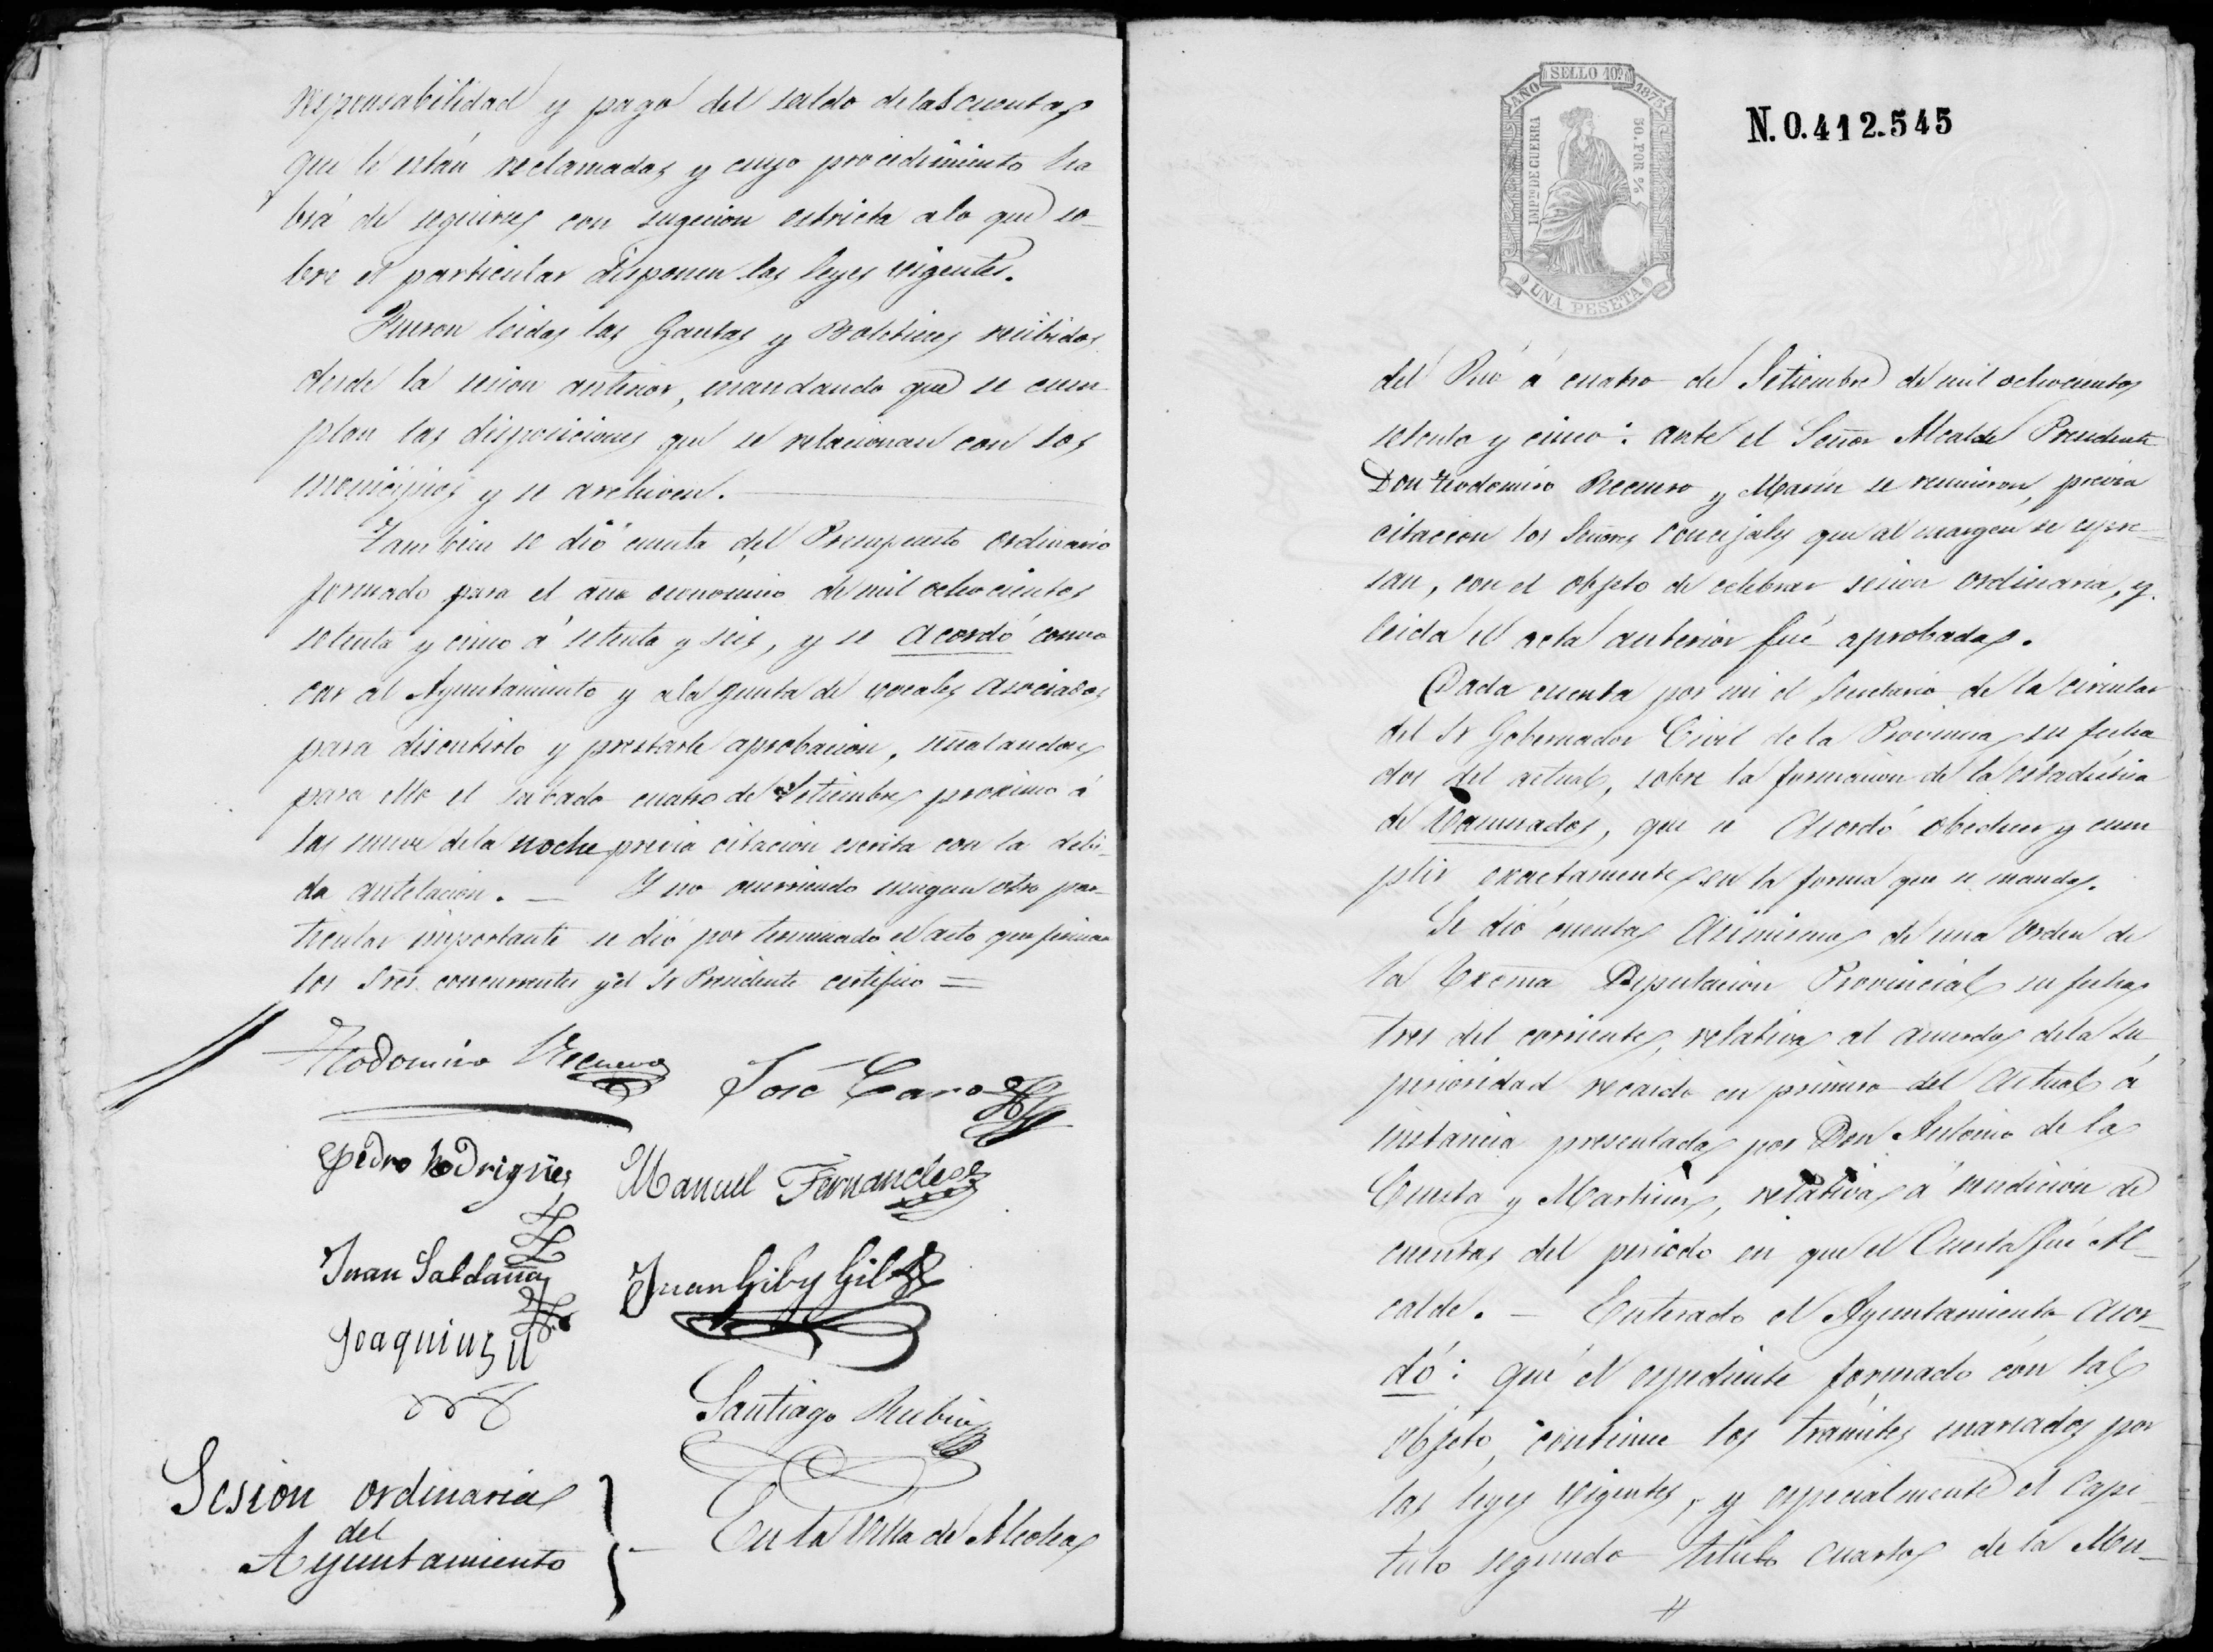 responsabilidad y pago del saldo de las cuentas
que le están reclamadas y cuyo procedimiento ha
brá de seguirse con sugecion estricta a lo que so-
bre el particular disponen las leyes vigentes.
Fueron leidas las Gacetas y Boletines recibidos
desde la sesion anterior, mandando que se cum
plan las disposiciones que se relacionan con los
municipios y se archiven.
Tambien se dió cuenta del Presupuesto ordinario
formado para el año economico de mil ochocientos
setenta y cinco á setenta y seis, y se acordó convo
car al Ayuntamiento y a la Junta de vocales asociados
para discutirlo y prestarle aprobacion, señalandose
para ello el sabado cuatro de Setiembre proximo á
las nueve de la noche previa citacion escrita con la debi-
da antelacion. — Y no ocurriendo ningun otro par-
ticular importante se dió por terminado el acto que firman
los Sres. concurrentes y el Sr Presidente certifico =
Teodomiro Recuero José Caro
Pedro Rodrigues Manuel Fernandez
Juan Saldaña Juan Gil y Gil
Joaquin
Santiago Rubio
Sesion ordinaria
del
Ayuntamiento
En la Villa de Alcolea
SELLO 10º
AÑO 1875
IMPTO DE GUERRA
50 POR %
UNA PESETA
N. 0.412.545
del Rio á cuatro de Setiembre de mil ochocientos
setenta y cinco: ante el Señor Alcalde Presidente
Don Teodomiro Recuero y Marin se reunieron, previa
citacion los Señores Concejales que al margen se espre-
san, con el objeto de celebrar sesion ordinaria, y
leida el acta anterior fué aprobada.
Dada cuenta por mi el Secretario de la circular
del Sr Gobernador Civil de la Provincia su fecha
dos del actual, sobre la formacion de la estadistica
de Vacunados, que se Acordó obedecer y cum
plir exactamente en la forma que se manda.
Se dió cuenta asimismo de una orden de
la Excma Diputacion Provincial su fecha
tres del corriente, relativa al acuerdo de la Su
perioridad recaido en primero del actual á
instancia presentada por Don Antonio de la
Cuesta y Martinez, relativa á rendicion de
cuentas del periodo en que el Cuesta fué Al-
calde. — Enterado el Ayuntamiento acor-
dó: que el espediente formado con tal
objeto, continue los tramites marcados por
las leyes vigentes, y especialmente el Capi-
tulo segundo titulo cuarto de la Mu-